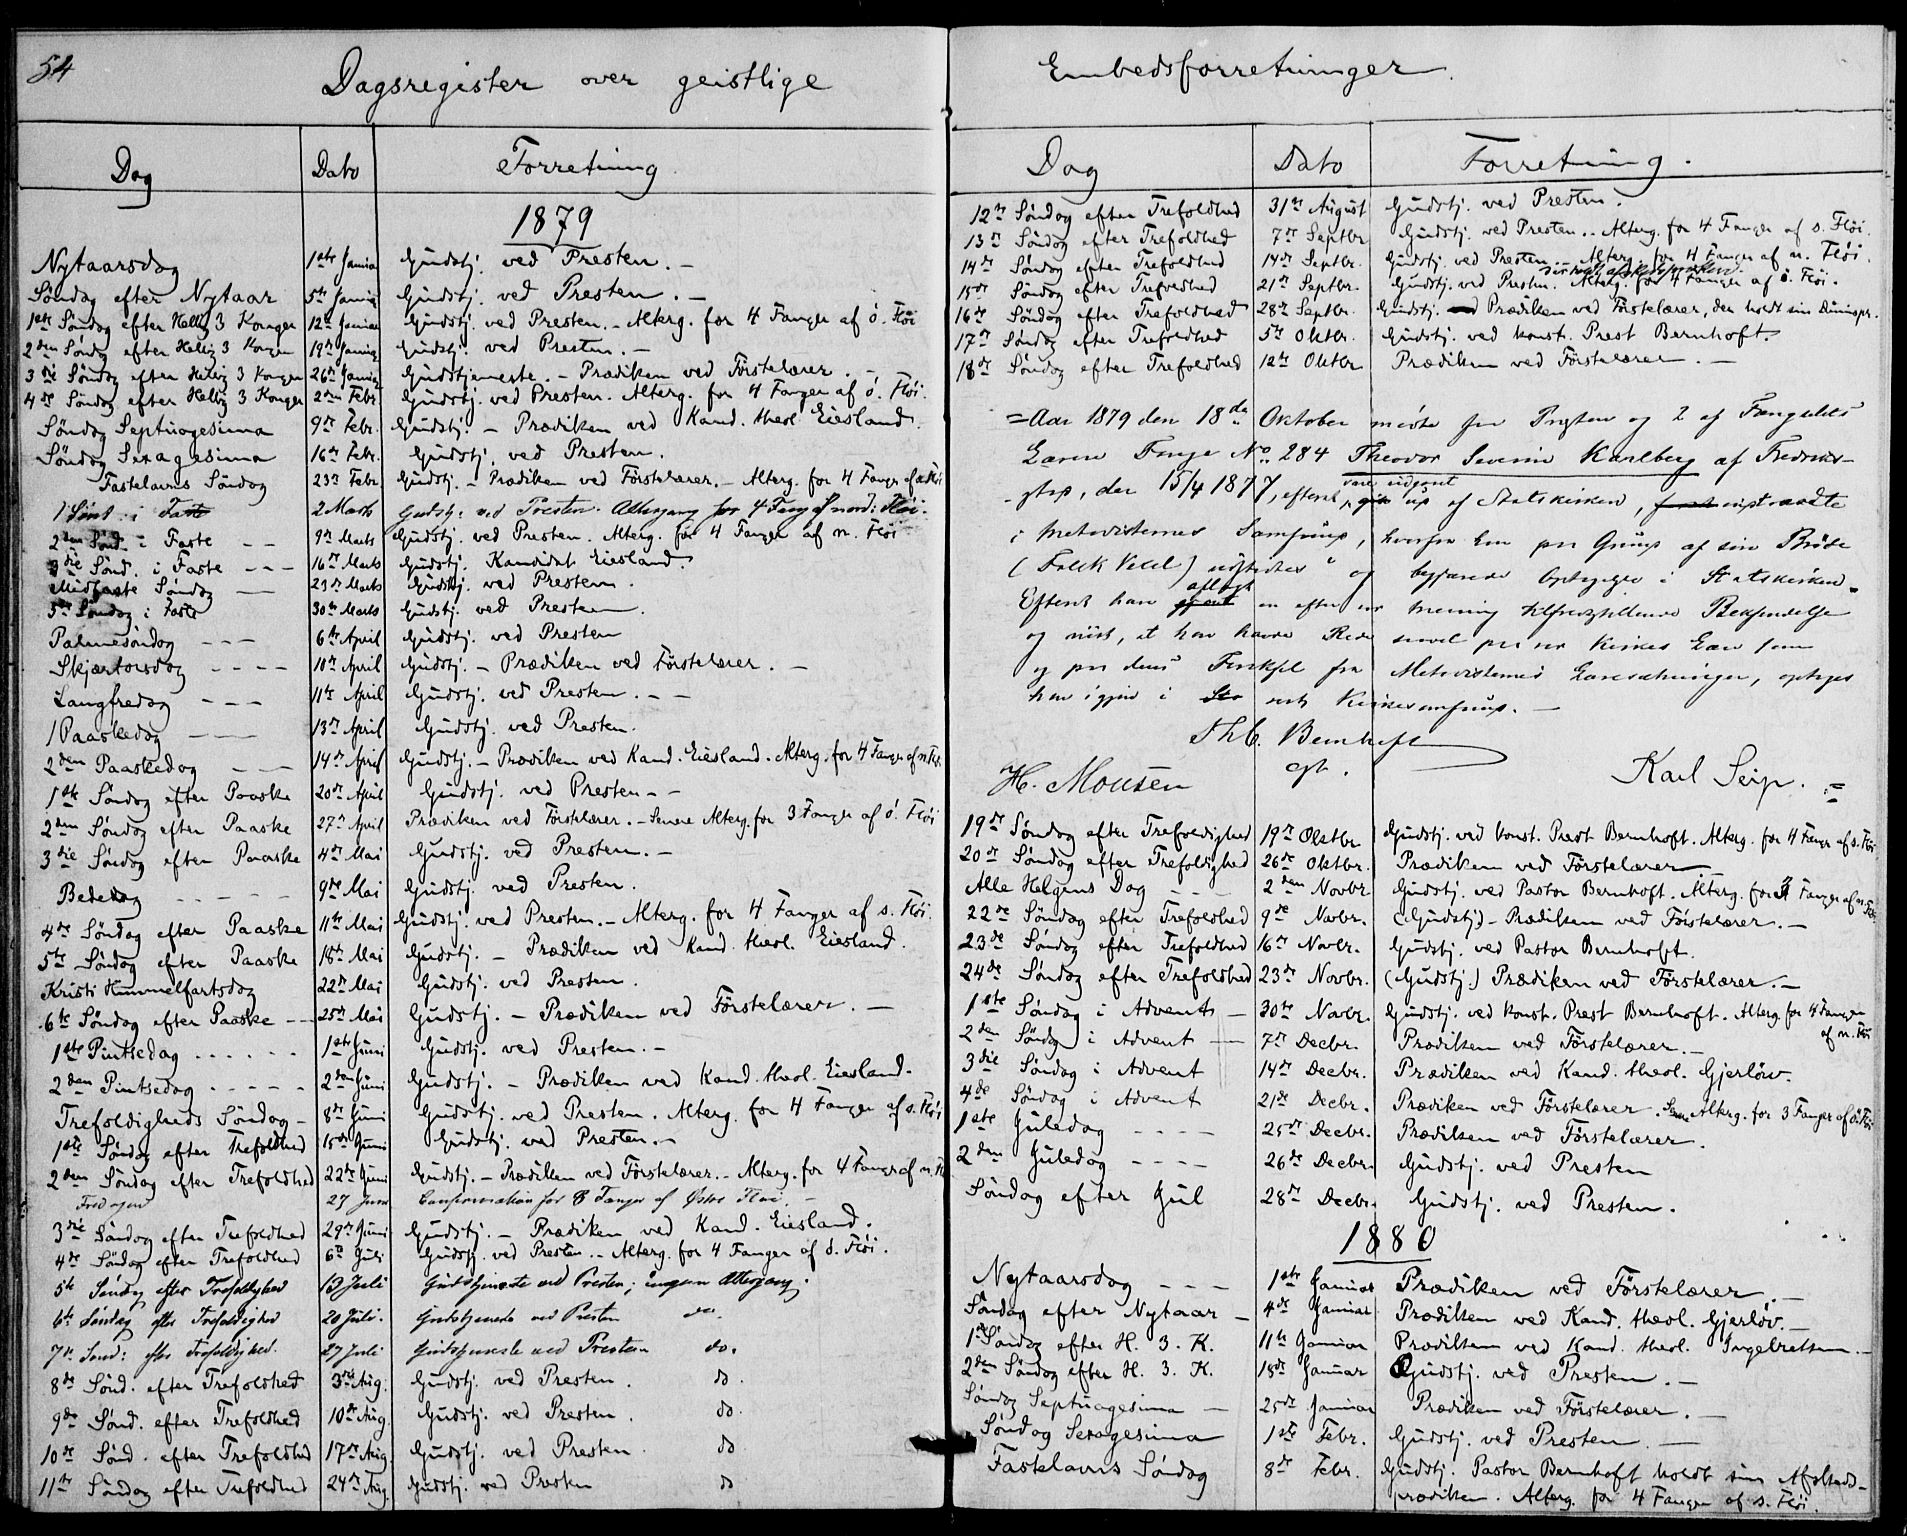 54
Dagsregister over geistlige
Dag Dato Forretning
1879
Nytaarsdag 1ste Januar Gudstj. ved Presten. –
Søndag efter Nytaar 5te Januar Gudstj. ved Presten. –
1ste Søndag efter Hellig 3 Konger 12te Januar Gudstj. ved Presten. – Alterg. for 4 Fanger af ø. Fløi
2den Søndag efter Hellig 3 Konger 19de Januar Gudstj. ved Presten. –
3die Søndag efter Hellig 3 Konger 26de Januar Gudstjeneste. – Prædiken ved Førstelærer. –
4de Søndag efter Hellig 3 Konger 2den Febr. Gudstj. ved Presten. Alterg. for 4 Fanger af ø. Fløi.
Søndag Septuagesima 9de Febr. Gudstj. – Prædiken ved Kand. theol. Eiesland.
Søndag Sexagesima 16de Febr. Gudstj. ved Presten.
Fastelavns Søndag 23de Febr. Gudstj. – Prædiken ved Førstelærer. – Alterg. for 4 Fanger af Fløi
1 Sønd. i Faste 2 Marts Gudstj. ved Presten. Altergang for 4 Fang. af nord. Fløi.
2den Sønd. i Faste – – 9de Marts Gudstj. ved Presten. Alterg. for 4 Fanger af n. Fløi
3die Sønd. i Faste – – – 16de Marts Gudstj. Kandidat Eiesland.
Midfaste Søndag – 23de Marts Gudstj. ved Presten.
5te Søndag i Faste 30te Marts Gudstj. ved Presten.
Palmesøndag – – – 6te April Gudstj. ved Presten
Skjærtorsdag – – – – 10de April Gudstj. – Prædiken ved Førstelærer. –
Langfredag – – – 11te April Gudstj. ved Presten. – –
1 Paaskedag – – 13de April Gudstj. ved Presten.
2den Paaskedag – – 14de April Gudstj. – Prædiken ved Kand. Eiesland. Alterg. for 4 Fanger af n. Fløi
1ste Søndag efter Paaske 20de April Gudstj. ved Presten – –
2den Søndag efter Paaske 27de April Prædiken ved Førstelærer. – Senere Alterg. for 3 Fanger af ø. Fløi
3die Søndag efter Paaske 4de Mai Gudstj. ved Presten. –
Bededag – – – – 9de Mai Gudstj. ved Presten.
4de Søndag efter Paaske 11te Mai Gudstj. ved Presten. – Alterg. for 4 Fanger af s. Fløi.
5te Søndag efter Paaske 18de Mai Gudstj. – Prædiken ved Kand. theol. Eiesland.
Kristi Himmelfartsdag 22de Mai Gudstj. ved Presten.
6te Søndag efter Paaske – – 25de Mai Gudstj. – Prædiken ved Førstelærer. –
1ste Pintsedag . . . . . . 1ste Juni Gudstj. ved Presten. –
2den Pintsedag – – – – – 2den Juni Gudstj. – Prædiken ved Kand. theol. Eiesland.
Trefoldigheds Søndag – 8de Juni Gudstj. ved Presten. Alterg. for 4 Fanger af s. Fløi
1ste Søndag efter Trefoldhed 15de Juni Gudstj. ved Presten. –
2den Søndag efter Trefoldhed 22de Juni Gudstj. – Prædiken ved Førstelærer. – Alterg. for 4 Fanger af n. Fl
Fredagen 27 Juni Confirmation for 8 Fanger af Østre Fløi. –
3die Søndag efter Trefoldhed 29de Juni Gudstj. – Prædiken ved Kand. Eiesland.
4de Søndag efter Trefoldhed 6te Juli Gudstj. ved Presten. – Alterg. for 4 Fanger af ø. Fløi.
5te Søndag efter Trefoldighed 13 Juli Gudstjeneste ved Presten; ingen Altergang.
6te Søndag efter Trefoldighed 20 Juli. Gudstjeneste ved Presten do.
7de Sønd: efter Trefoldighed. 27 Juli Gudstjeneste ved Presten do.
8de Sønd. efter Trefoldhed 3die Aug. Gudstj. ved Presten. do.
9de Sønd. efter Trefoldhed 10de Aug. Gudstj. ved Presten. do.
10de Sønd. efter Trefoldhed 17de Aug. Gudstj. ved Presten. do
11te Søndag efter Trefoldhed 24de Aug. Gudstj. ved Presten do
Embedsforretninger.
Dag Dato Forretning.
12te Søndag efter Trefoldhed 31te August Gudstj. ved Presten.
13de Søndag efter Trefoldhed 7de Septbr. Gudstj. ved Presten. . Alterg. for 4 Fanger af s. Fløi.
14de Søndag efter Trefoldhed 14de Septbr. Gudstj. ved Presten. – Alterg. for 4 Fanger af n. Fløi.
15de Søndag efter Trefoldhed 21de Septbr. Gudstj. ved Presten. Alterg. for 4 Fanger af ø. Fløi.
16de Søndag efter Trefoldhed 28de Septbr. Gudstj. Prædiken ved Førstelærer, der holdt sin Dimispr.
17de Søndag efter Trefoldhed 5te Oktbr. Gudstj. ved konst. Prest Bernhoft.
18de Søndag efter Trefoldhed 12te Oktbr. Prædiken ved Førstelærer. –
= Aar 1879 den 18de Oktober mødte for Presten og 2 af Fængslets
Lærere Fange No. 284 Theodor Severin Karlberg af Fredriks-
, der 15/4 1877, efterat være udgaat af Statskirken, indtraadte
i Metodisternes Samfund, hvorfra han paa Grund af sin Brøde
(Falsk Veksel) udstødtes og begjærede Optagelse i Statskirken.
Efterat have aflagt en efter vor Mening tilfredsstillende Bekjendelse
og viist, at han havde Rede saavel paa vor Kirkes Lære som
og paa dens Forskjel fra Metodisternes Læresætninger, optages
han igjen i vort Kirkesamfund. –
Th. C. Bernhoft
cst.
H. Mousen Karl Seip. =
19de Søndag efter Trefoldighed 19de Oktbr Gudstj. ved konst. Prest Bernhoft. Alterg. for 4 Fanger af s. Fløi
20de Søndag efter Trefoldighed 26de Oktbr. Prædiken ved Førstelærer
Alle Helgens Dag – – – 2den Novbr Gudstj. ved Pastor Bernhoft. Alterg. for 4 Fanger af n. Fløi
22de Søndag efter Trefoldhed 9de Novbr. (Gudstj.) – Prædiken ved Førstelærer. –
23de Søndag efter Trefoldhed 16de Novbr. Gudstj. ved Pastor Bernhoft.
24de Søndag efter Trefoldhed 23de Novbr. (Gudstj.) Prædiken ved Førstelærer. –
1ste Søndag i Advent – 30te Novbr. Gudstj. ved konst. Prest Bernhoft. Alterg. for 4 Fanger
af n. Fløi
2den Søndag i Advent – 7de Decbr. Prædiken ved Førstelærer. –
3die Søndag i Advent 14de Decbr. Prædiken ved Kand. theol. Gjerløv.
4de Søndag i Advent 21de Decbr. Prædiken ved Førstelærer. Sen. Alterg. for 3 Fanger af ø. Fløi
1ste Juledag – – – – 25de Decbr. Prædiken ved Førstelærer.
2den Juledag – – – – 26de Decbr. Gudstj. ved Presten
Søndag efter Jul 28de Decbr. Gudstj. ved Presten.
1880
Nytaarsdag – – – 1ste Januar Prædiken ved Førstelærer. –
Søndag efter Nytaar – 4de Januar Prædiken ved Kand. theol. Gjerløv. –
1ste Søndag efter H. 3. K. 11te Januar Prædiken ved Kand. theol. Ingebretsen. –
2den Søndag efter H. 3. K. 18de Januar Gudstj. ved Presten. –
Søndag Septuagesima – 25de Januar Prædiken ved Førstelærer. –
Søndag Sexagesima 1ste Febr. Gudstj. ved Presten. –
Fastelavns Søndag 8de Febr. Gudstj. Pastor Bernhoft holdt sin Afskeds-
prædiken. Alterg. for 4 Fanger af s. Fløi.